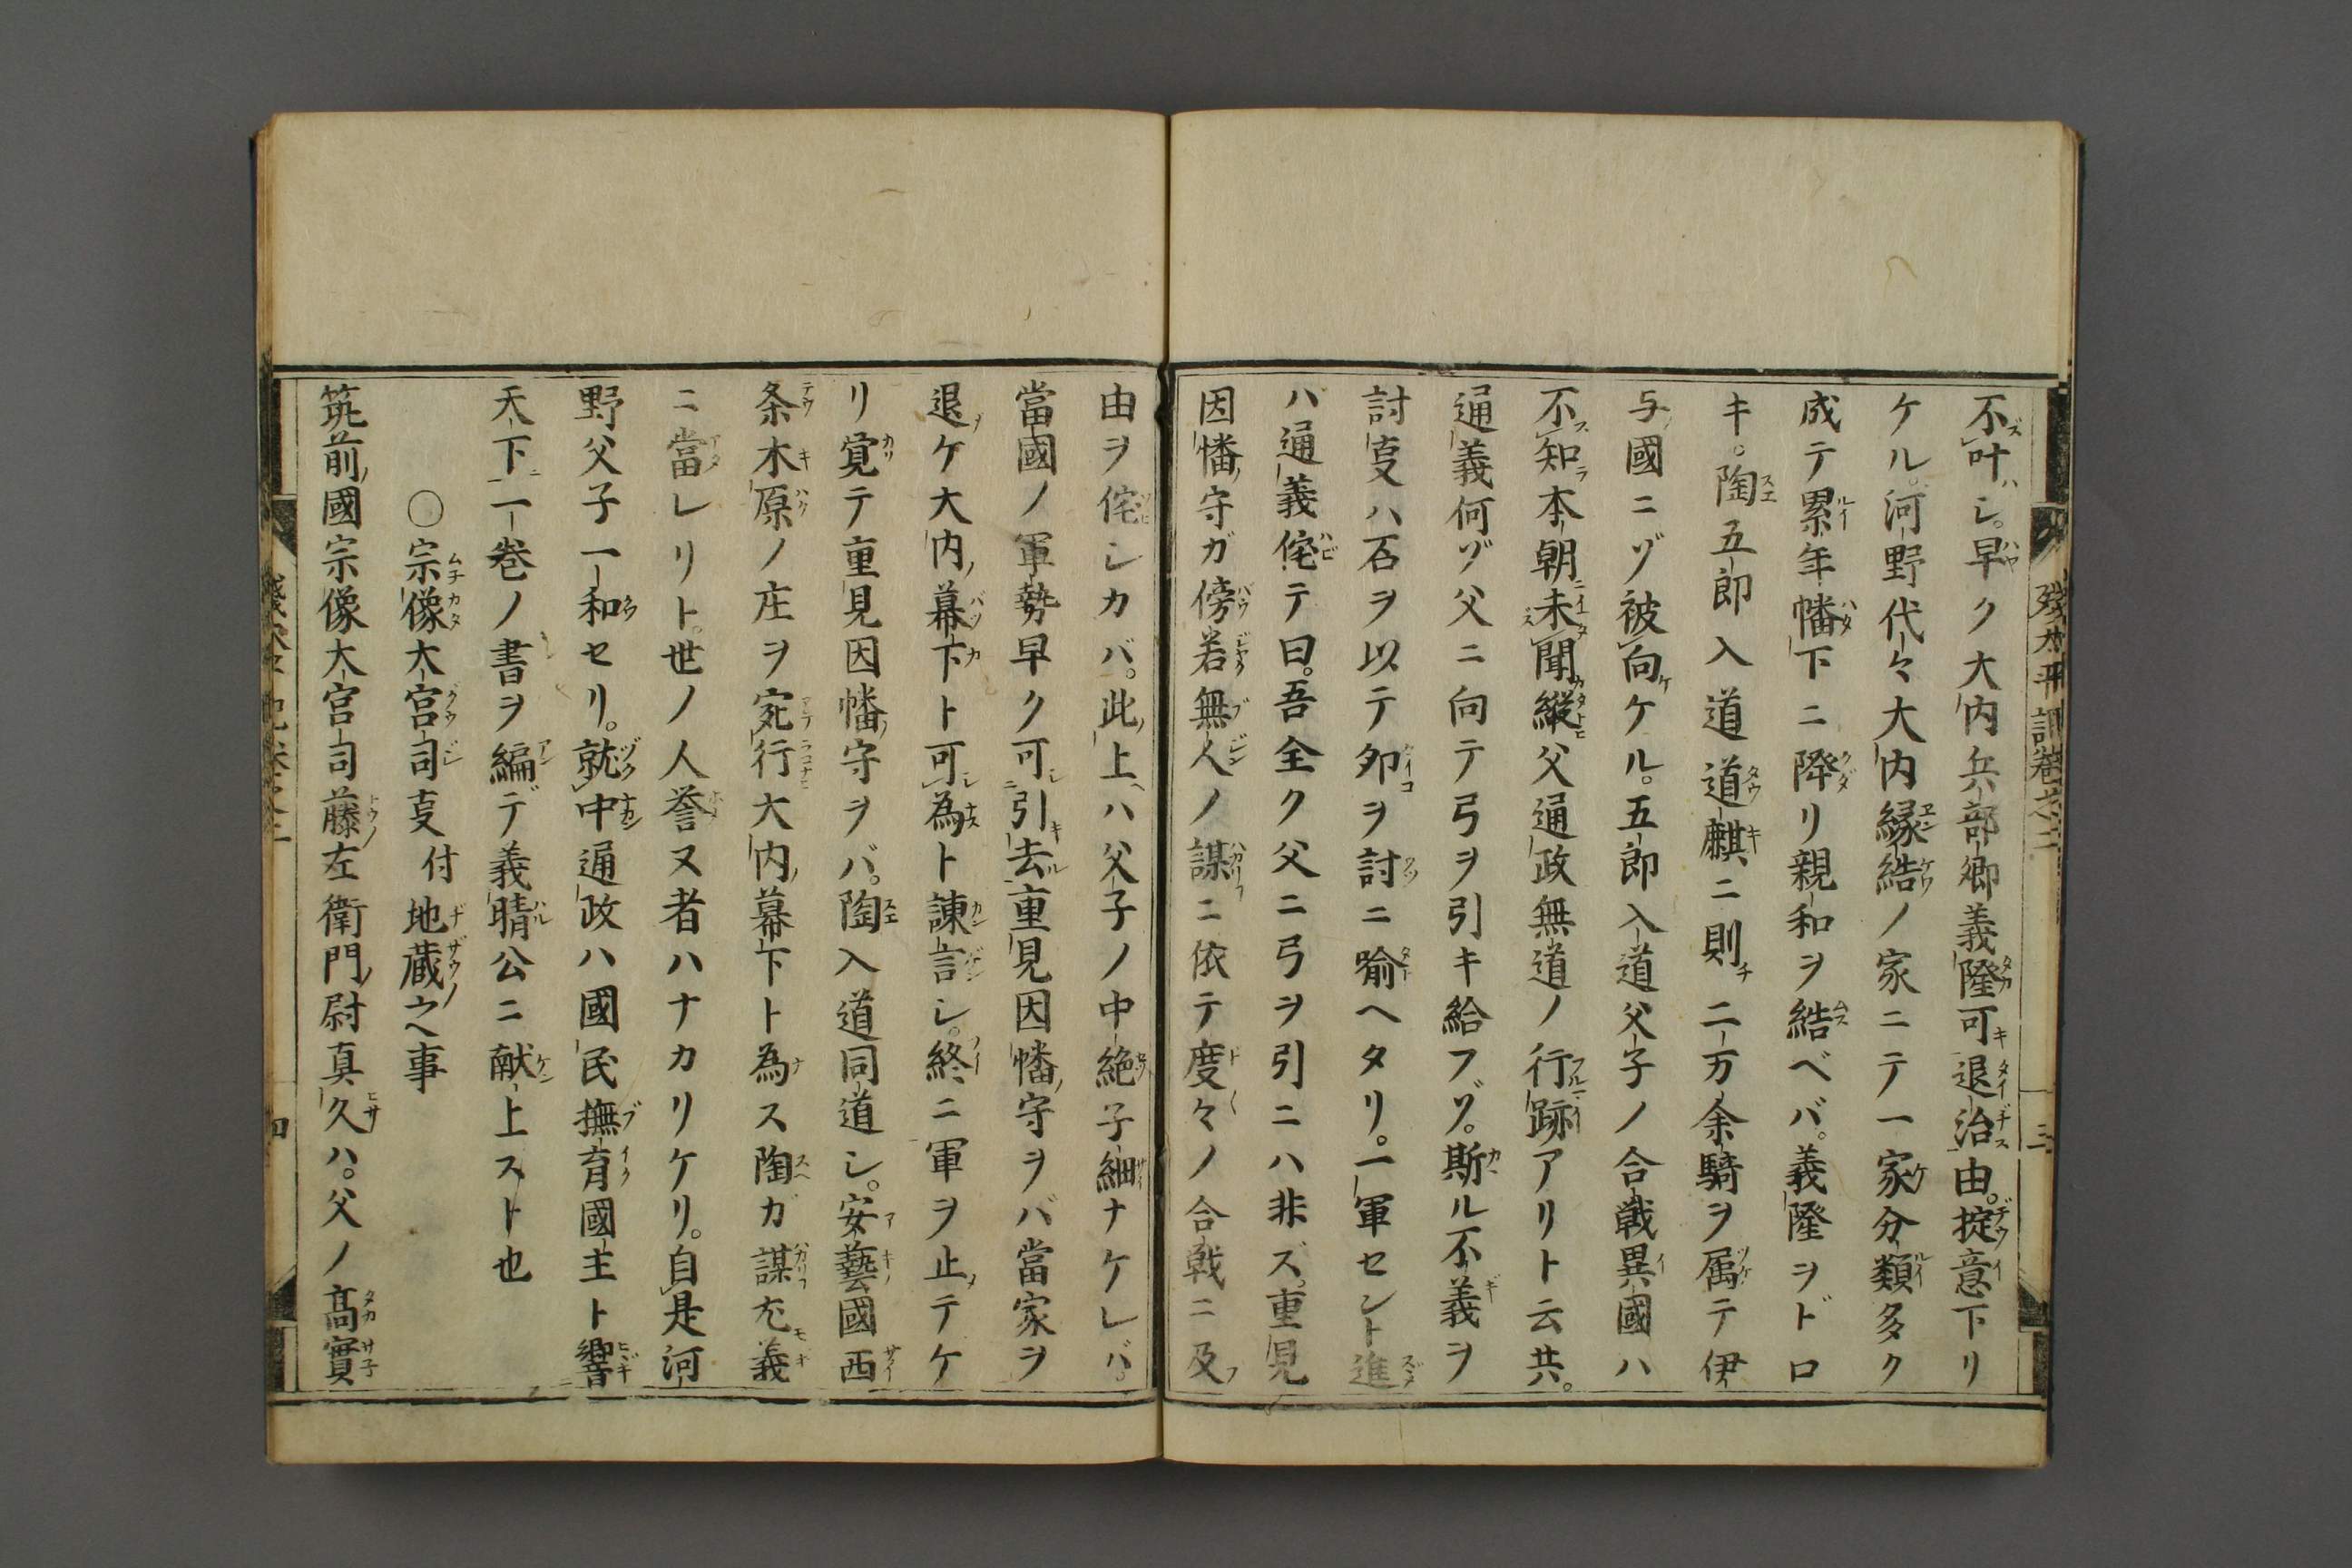 残太平記巻之二
三
不叶ハシ。早ク大内兵部卿義隆可キ退治由。掟意下リ
ケル。河野代々大内縁結ノ家ニテ一家分類多ク
成テ累年幡下ニ降リ親和ヲ結ベバ。義隆ヲドロ
キ。陶五郎入道道麒ニ則チ二万余騎ヲ属テ伊
与國ニゾ被向ケル。五郎入道父子ノ合戦異國ハ
不知本朝未聞縦父通政無道ノ行跡アリト云共。
通義何ゾ父ニ向テ弓ヲ引キ給フゾ。斯ル不義ヲ
討叓ハ石ヲ以テ卵ヲ討ニ喩ヘタリ。一軍セント進
バ通義侘テ曰。吾全ク父ニ弓ヲ引ニハ非ズ。重見
因幡守ガ傍若無人ノ謀ニ依テ度々ノ合戦ニ及
由ヲ侘シカバ。此上ハ父子ノ中絶子細ナケレバ。
當國ノ軍勢早ク可引去重見因幡守ヲバ當家ヲ
退ケ大内幕下ト可為ト諌言シ。終ニ軍ヲ止テケ
リ覚テ重見因幡守ヲバ。陶入道同道シ。安藝國西
条木原ノ庄ヲ宛行大内幕下ト為ス陶ガ謀尤義
ニ當レリト。世ノ人誉ヌ者ハナカリケリ。自是河
野父子一和セリ。就中通政ハ國民撫育國主ト響
天下一巻ノ書ヲ編デ義晴公ニ献上スト也
〇宗像大宮司叓付地蔵之事
筑前國宗像大宮司藤左衛門尉真久ハ。父ノ高實
四